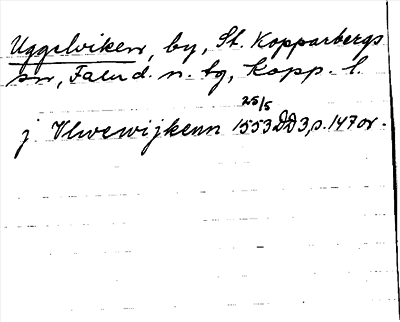 Uggelviken, by, St. Kopparbergs
sn, Falu d. n. tg, Kopp. l.
25/5
j Vlwewijkenn 1553 DD 3, s. 147 or.